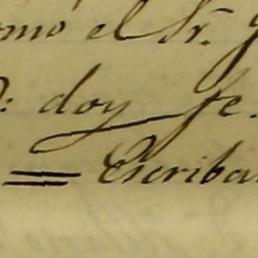 omo el Sr.
: doy fe.
= Escriba